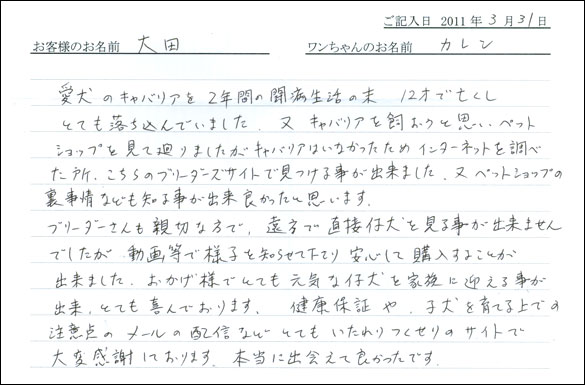 ご記入日 2011年3月31日
お客様のお名前 大田 ワンちゃんのお名前 カレン
愛犬のキャバリアを2年間の闘病生活の末 12才で亡くし
とても落ち込んでいました。又 キャバリアを飼おうと思い、ペット
ショップを見て廻りましたがキャバリアはいなかったため インターネットを調べ
た所、こちらのブリーダーズサイトで見つける事が出来ました。又 ペットショップの
裏事情なども知る事が出来良かったと思います。
ブリーダーさんも親切な方で、遠方で直接仔犬を見る事が出来ません
でしたが 動画等で様子を知らせて下さり 安心して購入することが
出来ました。おかげ様でとても元気な仔犬を家族に迎える事が
出来、とても喜んでおります。 健康保証や、子犬を育てる上での
注意点のメールの配信などとてもいたれりつくせりのサイトで
大変感謝しております。本当に出会えて良かったです。